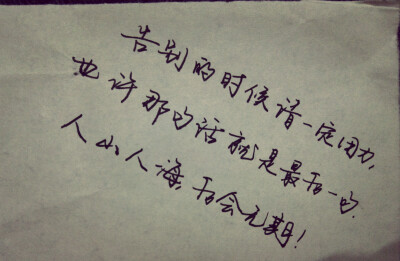 告别的时候请一定用力,
也许那的话就是最后一的.
人山人海,后会无期!